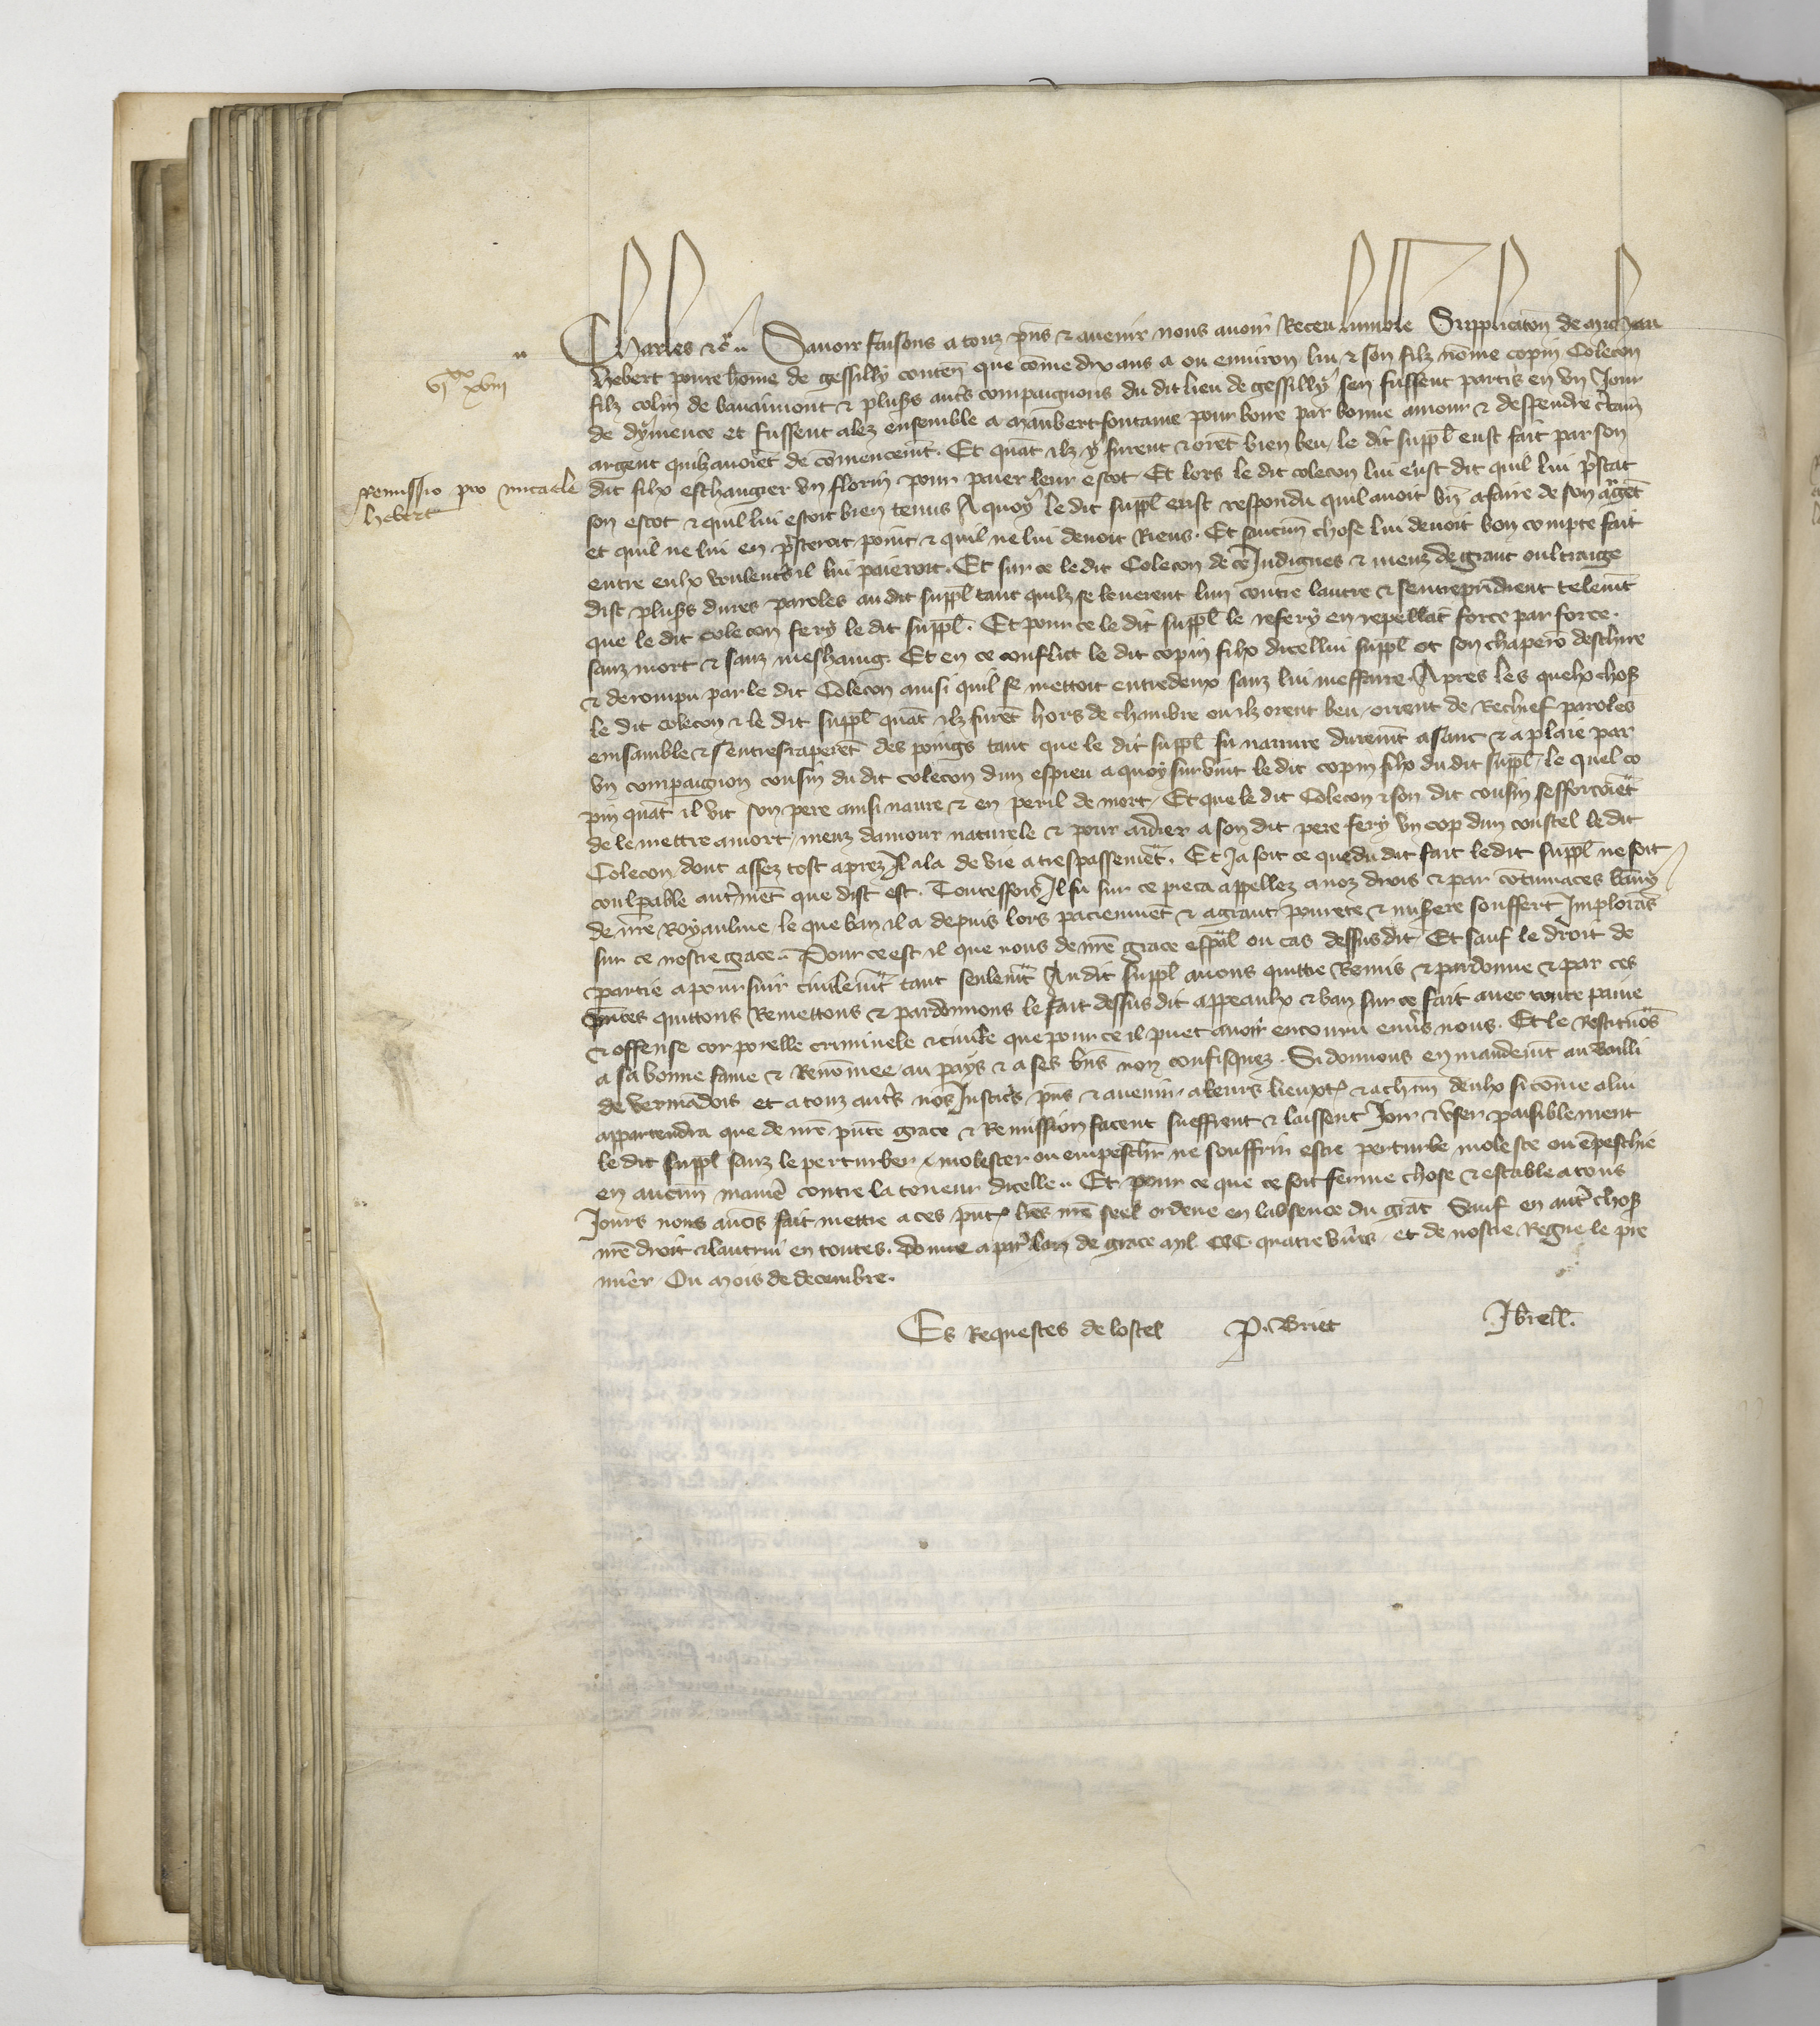 Charles &c̃ Savoir faisons a touz pñs & avenir nous avoir Receu humble Supplicac̃on de michau
vjxx xviij
hebert povre hõme de gessilly conteñ que cõme dix ans a ou environ lui & son filz nõme copin Colecon
filz colin de bavaimont & plus̃s aut̃s compaignons du dit lieu de gessilly sen fussent partis en un Jour
de dymence et fussent alez ensemble a maubertfontaine pour boire par bonne amour & despendre c̃tain
argent quilz avoiẽt de cõmencem̃t. Et quãt ilz y furent & orẽt bien beu, le dit suppl̃ eust fait par son
Remissio pro micaele
hebert
dit filx eschangier un florin pour paier leur escot. Et lors le dit colecon lui eust dit quil lui p̃stat
son escot & quil lui estoit bien tenus A quoy le dit suppl̃ eust respondu quil avoit bñ afaire de son argẽt
et quil ne lui en p̃steroit point & quil ne lui devoit Riens. Et saucuñ chose lui devoit bon compte fait
entre eulx voulent̃s il lui paieroit. Et sur ce le dit Colecon de ce Indignes & meuz de grant oultraige
dist plus̃s dures paroles au dit suppl̃ tant quilz se leverent lun contre lautre & sentreprãdient telem̃t
que le dit colecon fery le dit suppl̃. Et pour ce le dit suppl̃ le refery en repellãt force par force.
sanz mort & sanz meshaing. Et en ce conflict le dit copin filx dicellui suppl̃ ot son chaperõ deschire
& derompu par le dit Colecon ainsi quil se mettoit entredeux sanz lui meffaire. Apres les quelx chos̃
le dit colecon & le dit suppl̃ quãt ilz furẽt hors de chambre ou ilz orent beu, orrent de Rechief paroles
emsamble & sentrefraperẽt des poings tant que le dit suppl̃ fu navrure durem̃t a sanc & a plaie par
un compaignon cousin du dit colecon dun espieu a quoy survint le dit copin filx du dit suppl̃, le quel co
pin quãt il vit son pere ainsi navre & en peril de mort, Et que le dit Colecon & son dit cousin sefforcoiẽt
de le mettre a mort, meuz damour naturele & pour aidier a son dit pere fery un cop dun coustel le dit
Colecon dont assez tost aprez Il ala de vie a trespassemẽt. Et Ja soit ce que du dit fait le dit suppl̃ ne soit
coulpable aut̃mẽt que dist est. Toutesfois Il fu sur ce pieca appellez a noz drois & par cõtumaces banny
de nr̃e Royaulme, le que ban il a depuis lors paciemmẽt & a grant povrete & misere souffert Implorãs
sur ce nostre grace. Pour ce est il que nous de nr̃e grace esp̃al ou cas dessusdit, Et sauf le droit de
partie a poursuir civilem̃t tant seulem̃t Au dit suppl̃ avons quittie Remis & pardonne & par ces
p̃ntes quittons Remettons & pardonnons le fait dessusdit appeaulx & ban sur ce fait avec toute paine
& offense corporelle criminele & civile que pour ce il puet avoir encouru env̂s nous. Et le Restituõs
a sa bonne fame & Renõmee au pays & a ses bñs non confisquez. Si donnons en mandem̃t au Bailli
de vermãdois et a touz aut̃s nos Justic̃s pñs & avenir, a leurs lieuxt̃ & a chũn deulx si cõme a lui
appartendra que de nr̃e p̃nte grace & Remission facent sueffrent & laissent Joir & user paisiblement
le dit suppl̃ sanz le perturber molester ou empeschr̃ ne souffrir estre perturbe moleste ou ẽpeschie
en aucuñ manier̃ contre la teneur dicelle. Et pour ce que ce soit ferme chose & estable a tous
Jours nous avõs fait mettre a ces p̃nt̃ lr̃es nr̃e seel ordene en labsence du grãt Sauf en aut̃ chos̃
nr̃e droit & lautrui en toutes. Donne a par̃ lan de grace mil CCC quatre vins, et de nostre Regne le pre
mier Ou mois de decembre.
Es Requestes de lostel P. Briet Jbrell̃.